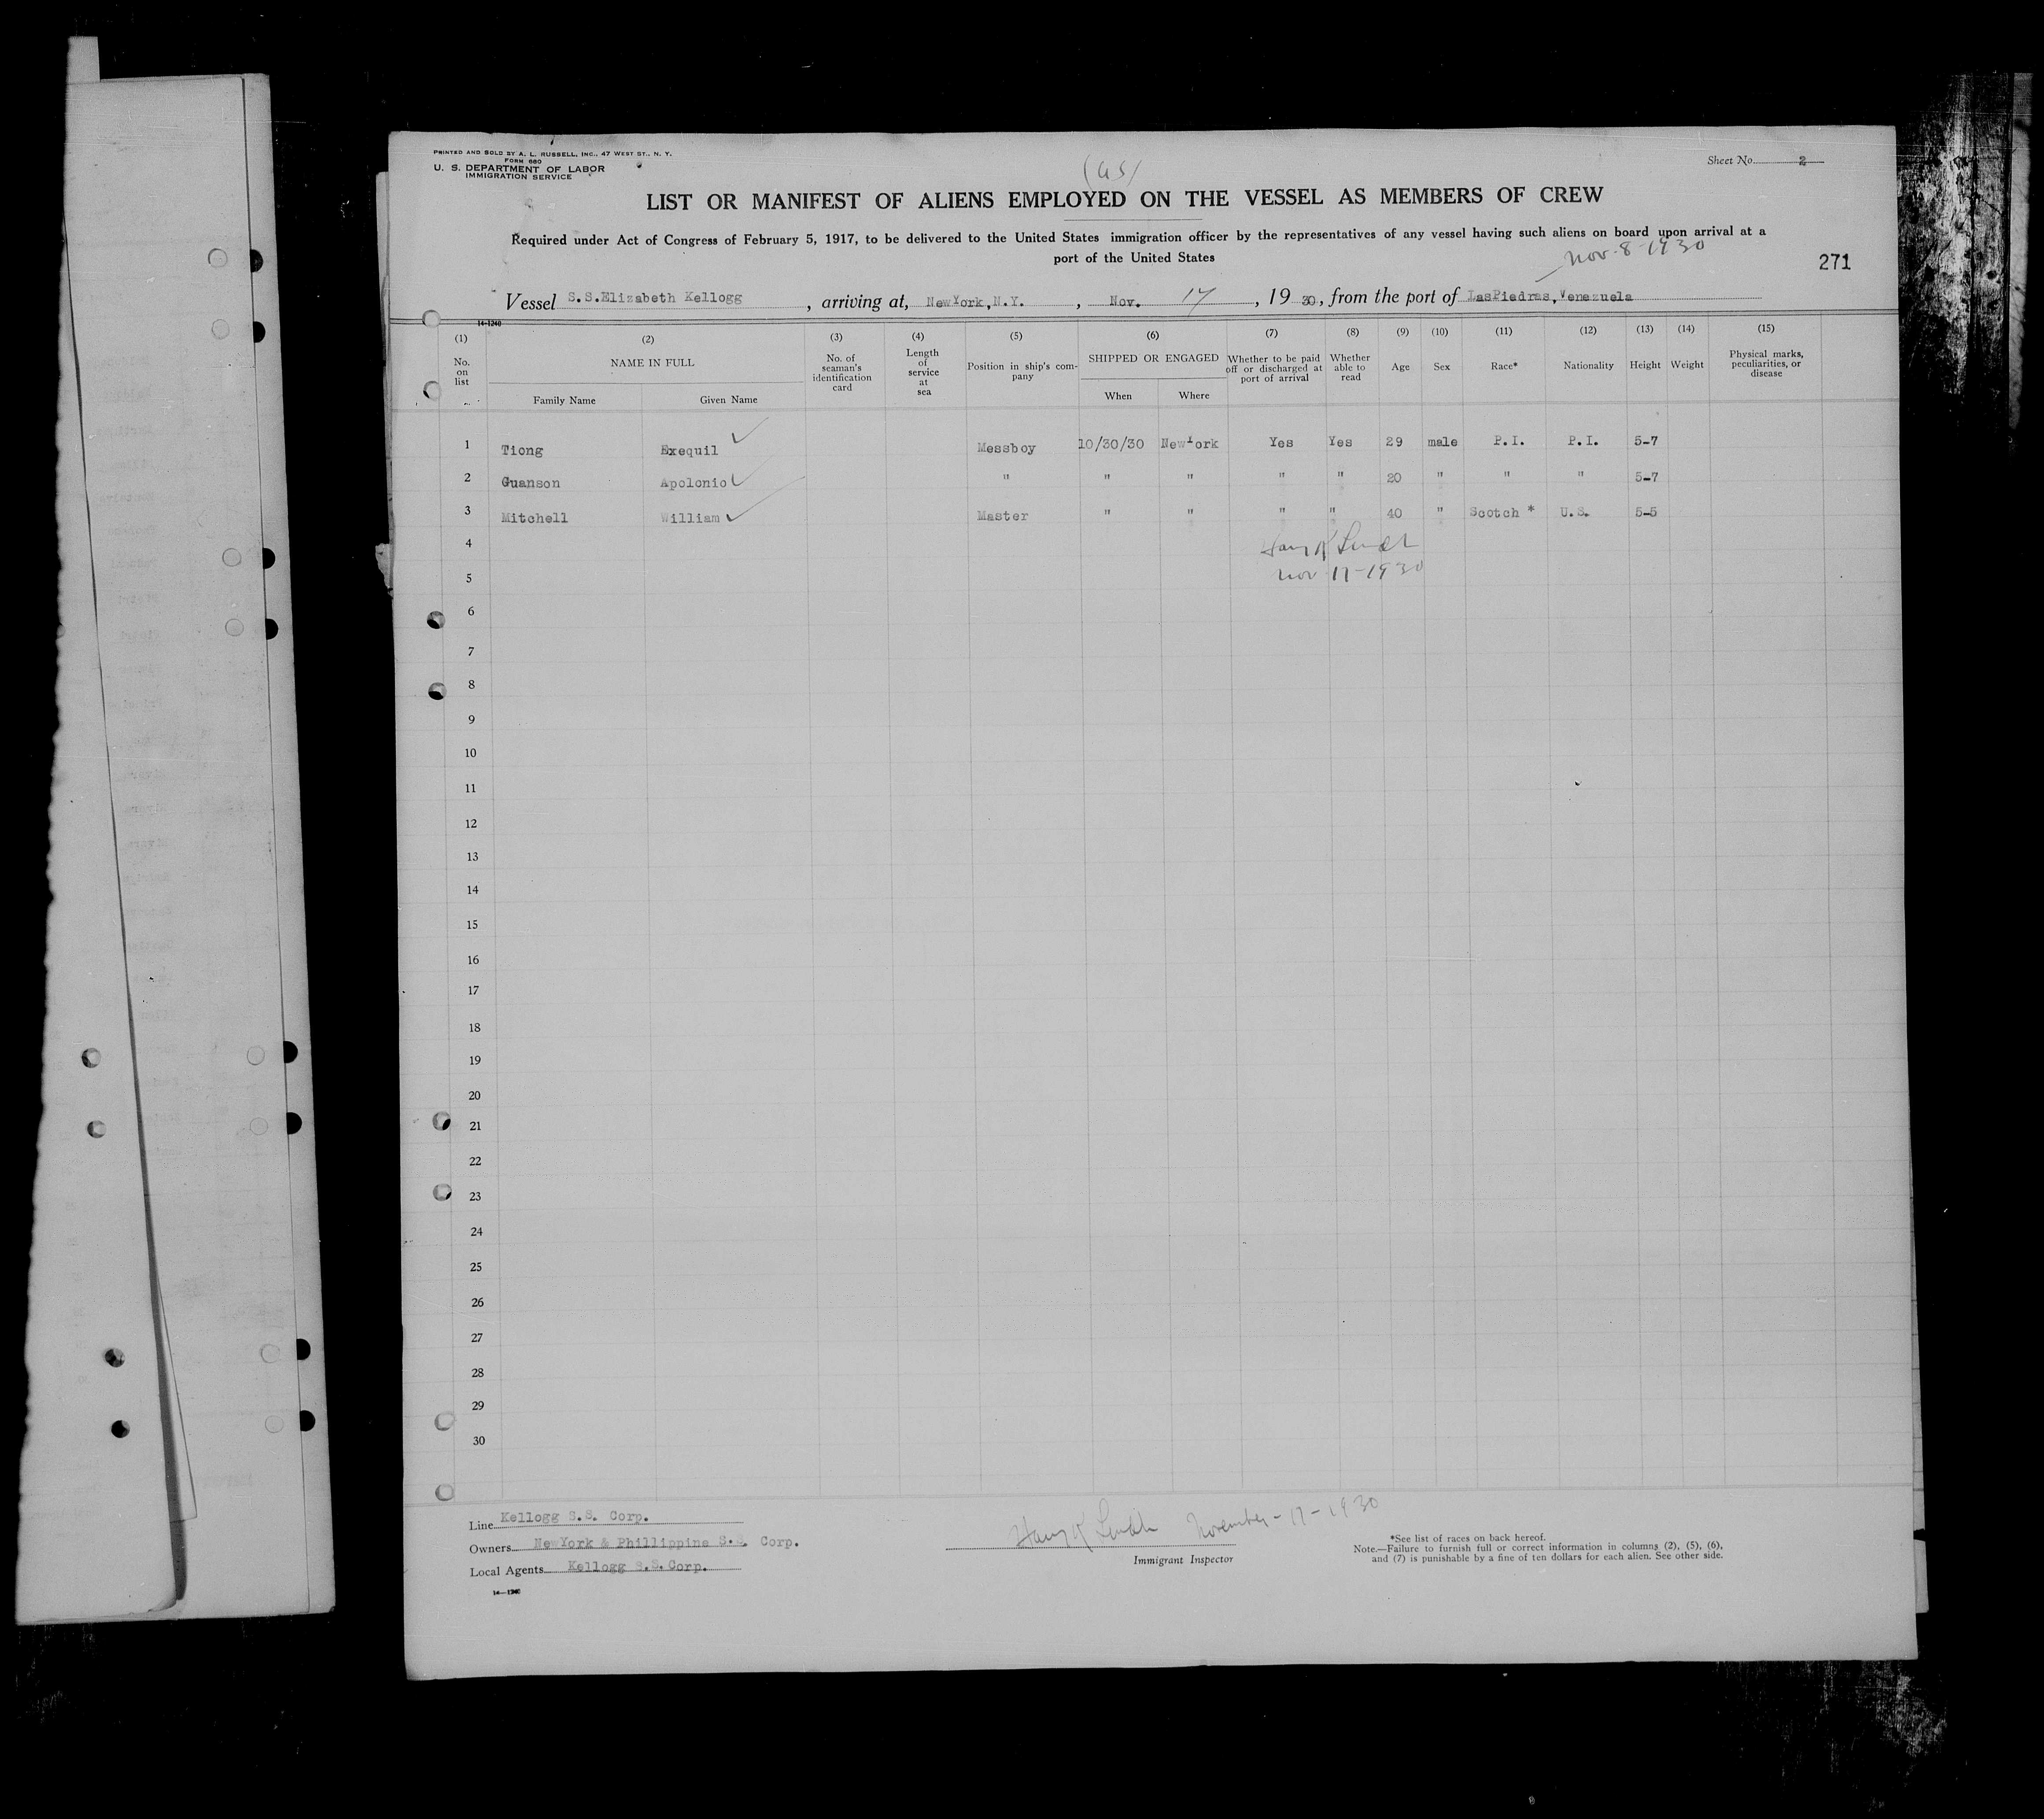 PRINTED AND SOLD BY A. L. RUSSELL, INC., 47 WEST ST., N. Y.
FORM 680
U. S. DEPARTMENT OF LABOR
IMMIGRATION SERVICE
Sheet No. 2
LIST OR MANIFEST OF ALIENS EMPLOYED ON THE VESSEL AS MEMBERS OF CREW
Required under Act of Congress of February 5, 1917, to be delivered to the United States immigration officer by the representatives of any vessel having such aliens on board upon arrival at a
port of the United States
Nov-8-1930
271
Vessel S.S.Elizabeth Kellogg, arriving at, NewYork,N.Y., Nov. 17, 1930, from the port of LasPiedras, Venezuela
14-1240
(1) (2) (3) (4) (5) (6) (7) (8) (9) (10) (11) (12) (13) (14) (15)
No. on list NAME IN FULL No. of seaman's identification card Length of service at sea Position in ship's company SHIPPED OR ENGAGED Whether to be paid off or discharged at port of arrival Whether able to read Age Sex Race* Nationality Height Weight Physical marks, peculiarities, or disease
Family Name Given Name When Where
1 Tiong Exequil Messboy 10/30/30 NewYork Yes Yes 29 male P.I. P.I. 5-7
2 Guanson Apolonio " " " " " 20 " " " 5-7
3 Mitchell William Master " " " " 40 " Scotch * U.S. 5-5
4
Nov 17-1930
5
6
7
8
9
10
11
12
13
14
15
16
17
18
19
20
21
22
23
24
25
26
27
28
29
30
Line Kellogg S.S. Corp.
Owners NewYork & Phillippine S.S. Corp.
Local Agents Kellogg S.S.Corp.
14-1240
November-17-1930
Immigrant Inspector
*See list of races on back hereof.
Note.—Failure to furnish full or correct information in columns (2), (5), (6),
and (7) is punishable by a fine of ten dollars for each alien. See other side.